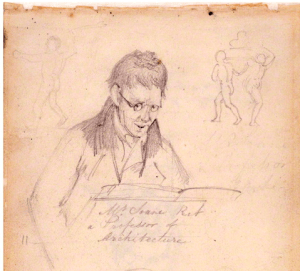 Mr Soane Ret
a Professor of
Architecture
11